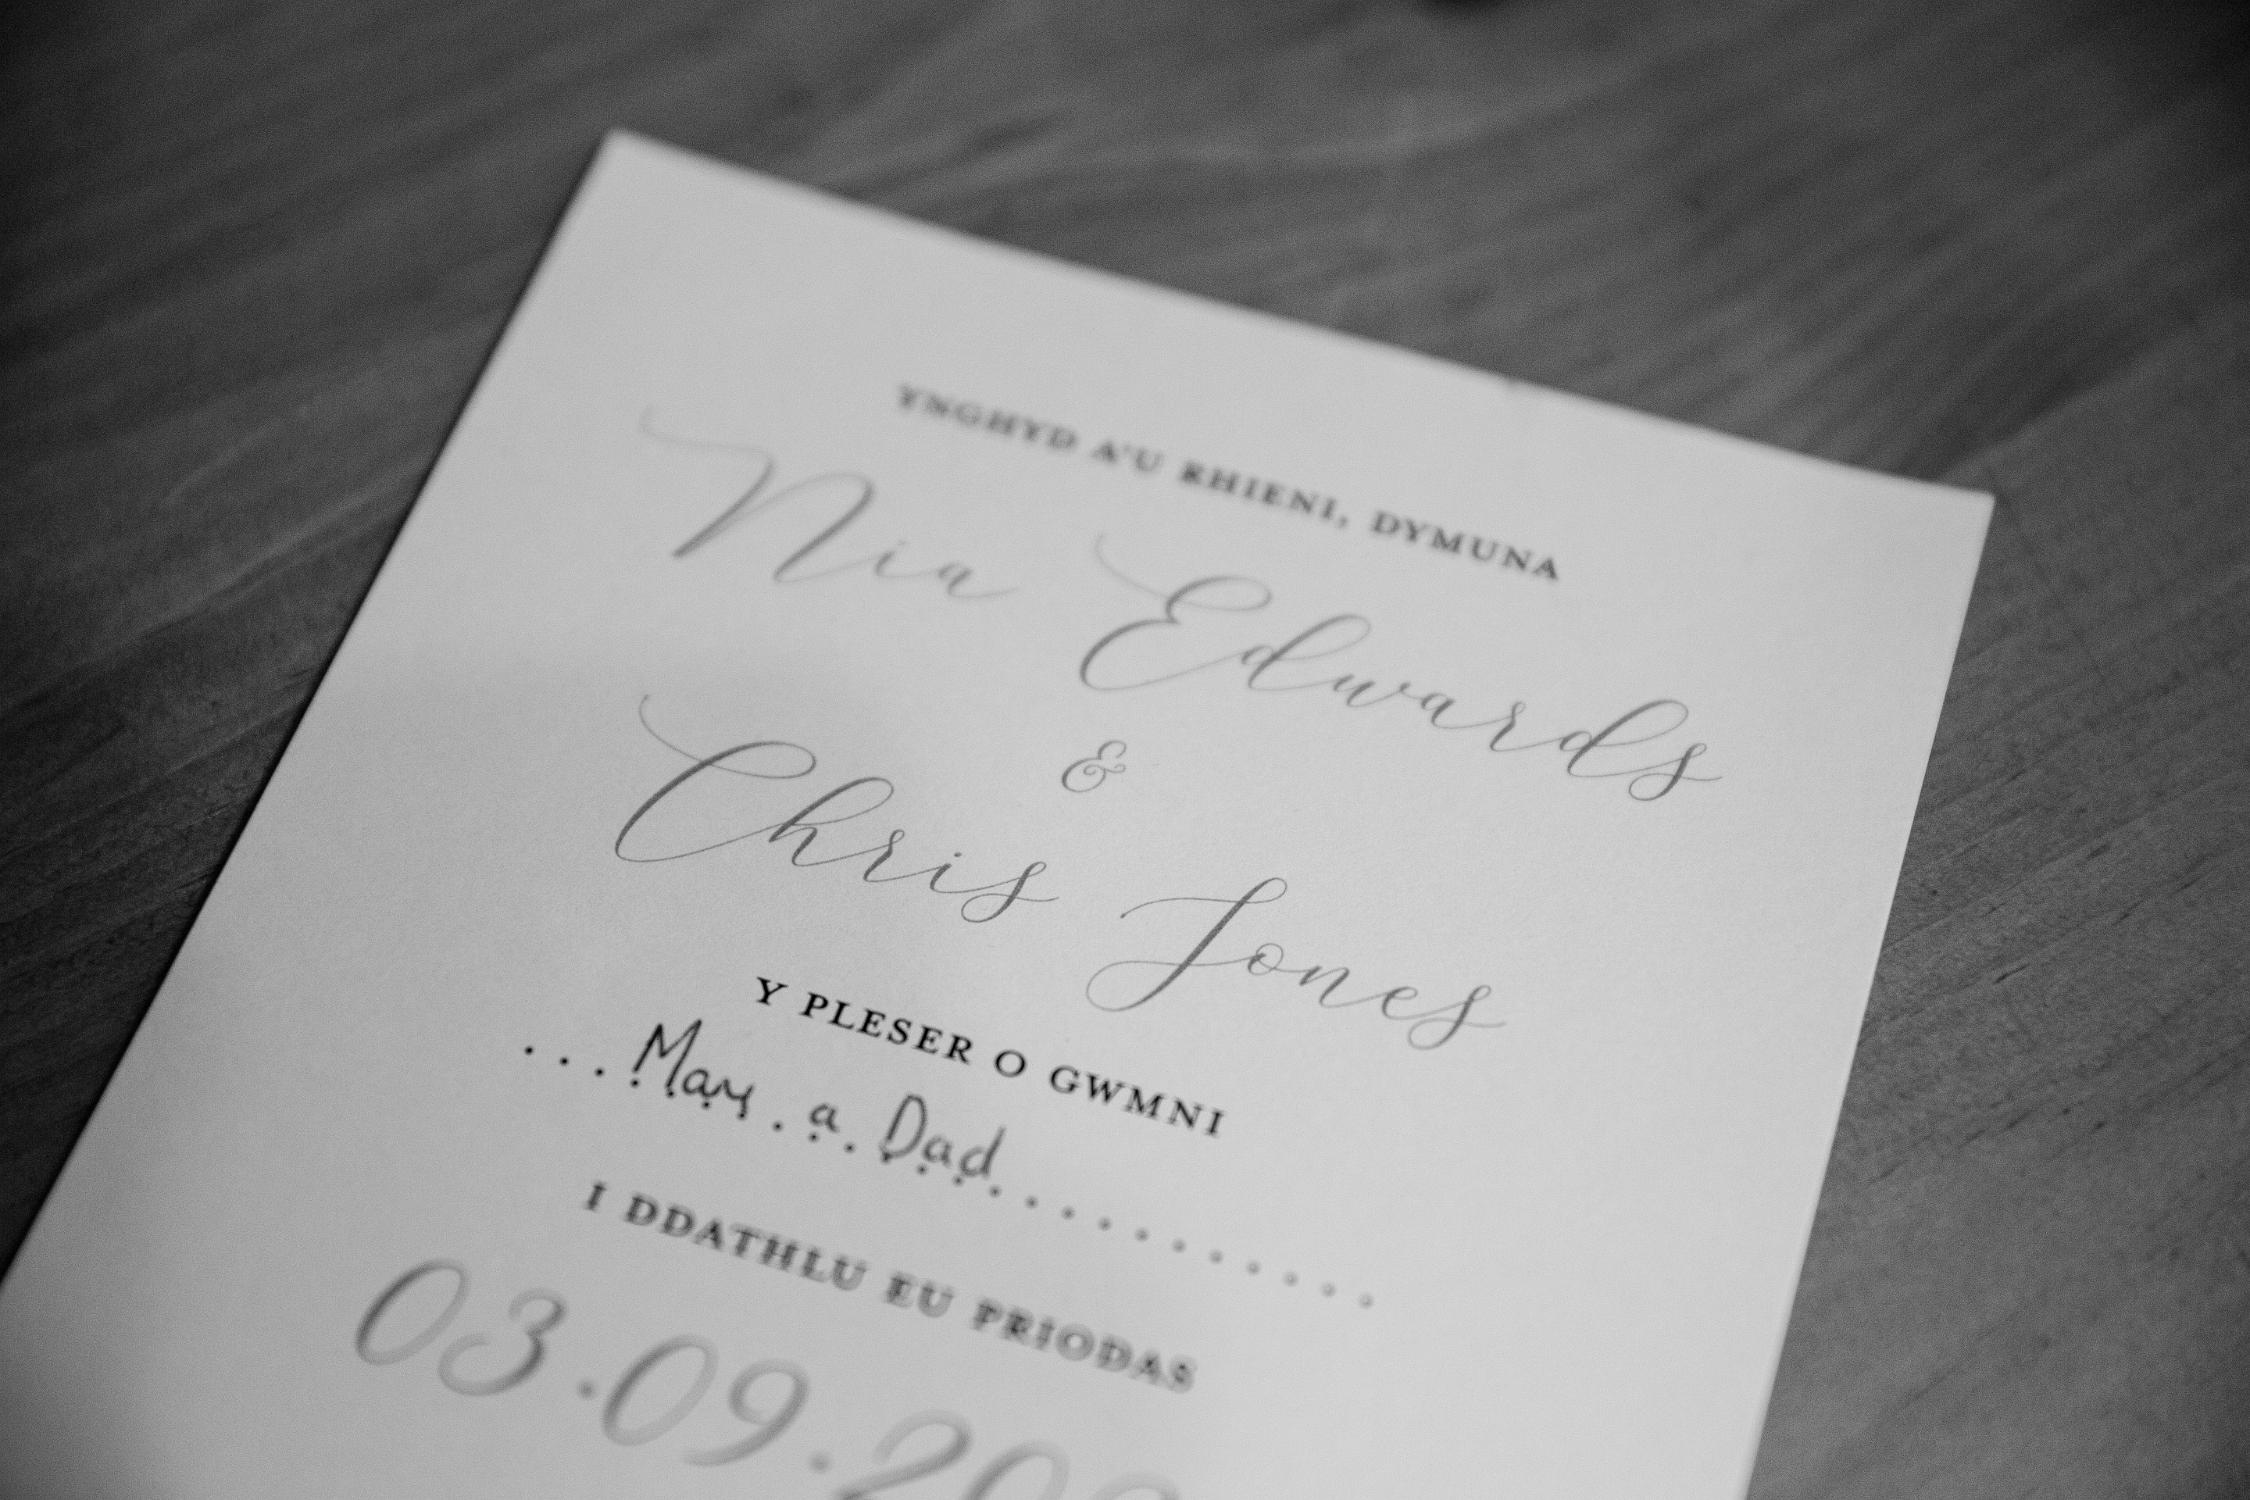 YNGHYD A'U RHIENI, DYMUNA
Nia Edwards
&
Chris Jones
Y PLESER O GWMNI
...Mam a Dad...............
I DDATHLU EU PRIODAS
03.09.20